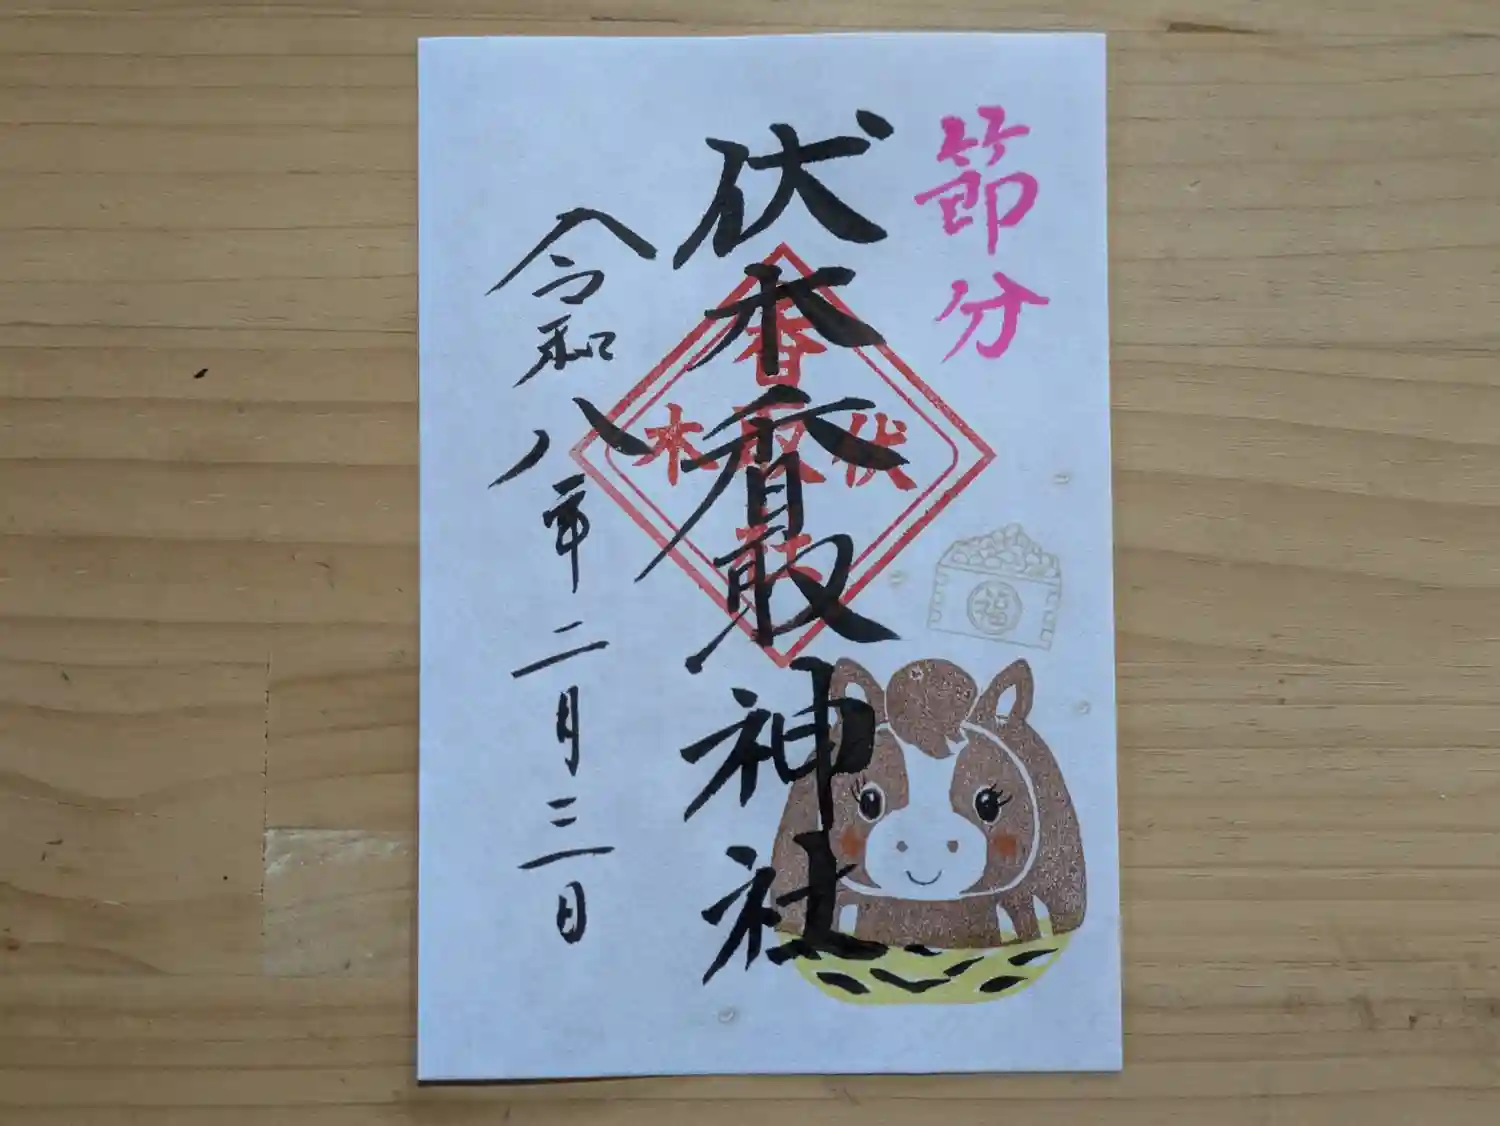 節分
伏木香取神社
令和八年二月三日
香
伏取木
福